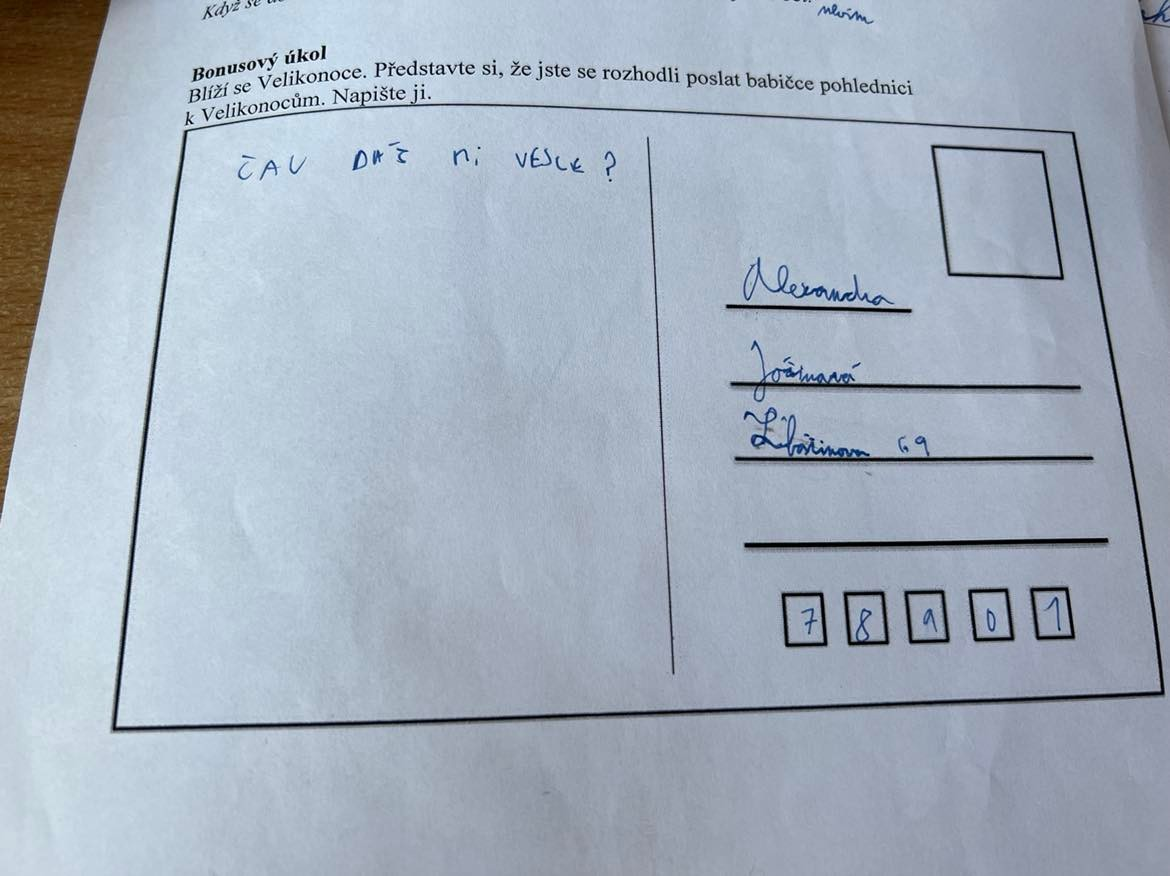 Když se
nevím
Bonusový úkol
Blíží se Velikonoce. Představte si, že jste se rozhodli poslat babičce pohlednici
k Velikonocům. Napište ji.
ČAU DÁŠ mi VEJCE ?
Alexandra
69
7 8 9 0 1